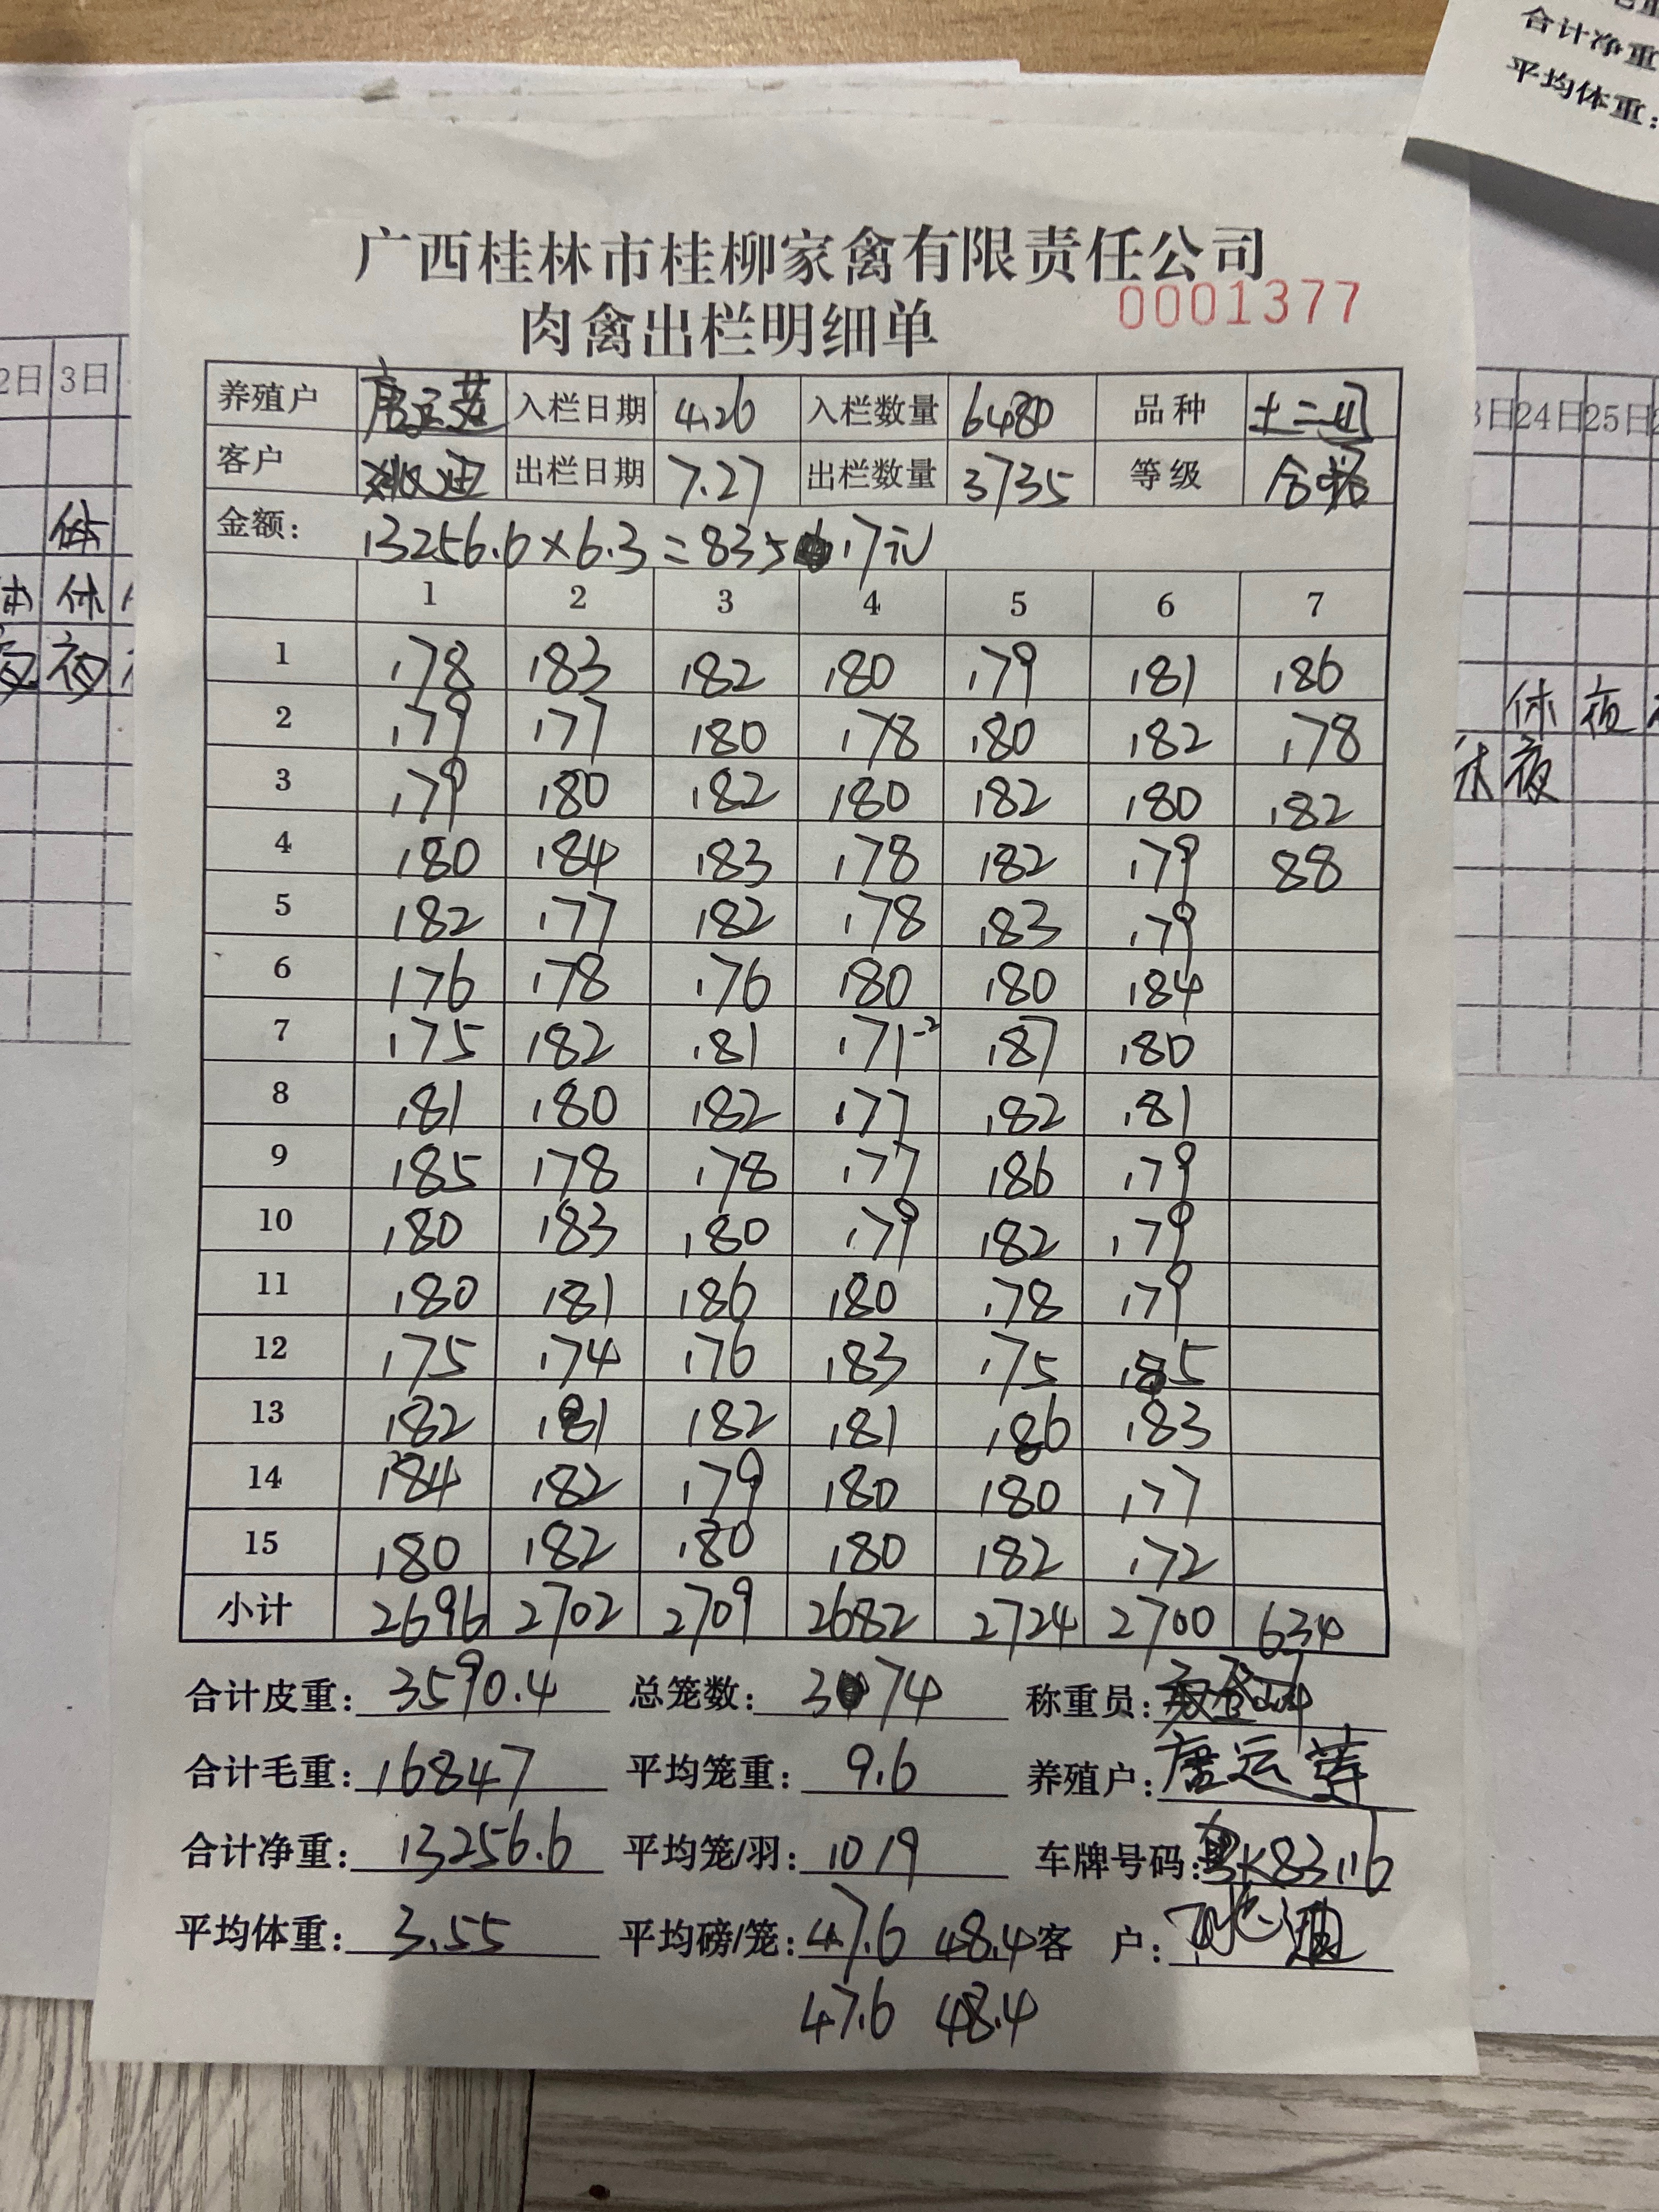 合计净重
平均体重:
广西桂林市桂柳家禽有限责任公司
肉禽出栏明细单 0001377
养殖户 入栏日期 4.26 入栏数量 6480 品种 土二
客户 出栏日期 7.27 出栏数量 3735 等级 合格
金额: 13256.6×6.3=835 .17元
1 2 3 4 5 6 7
1 178 183 182 180 179 181 186
2 179 177 180 178 180 182 178
3 179 180 182 180 182 180 182
4 180 184 183 178 182 179 88
5 182 177 182 178 183 179
6 176 178 176 180 180 184
7 175 182 181 171-2 187 180
8 181 180 182 177 182 181
9 185 178 178 177 186 179
10 180 183 180 179 182 179
11 180 181 186 180 178 179
12 175 174 176 183 175 185
13 182 181 182 181 186 183
14 184 182 179 180 180 177
15 180 182 180 180 182 172
小计 2696 2702 2709 2682 2724 2700 634
合计皮重: 3590.4 总笼数: 374 称重员:
合计毛重: 16847 平均笼重: 9.6 养殖户: 唐运
合计净重: 13256.6 平均笼/羽: 10/9 车牌号码: 粤K83116
平均体重: 3.55 平均磅/笼: 47.6 48.4 客 户:
47.6 48.4
2日 3日
休
休 休
夜 夜
24日 25日
休 夜
休 夜